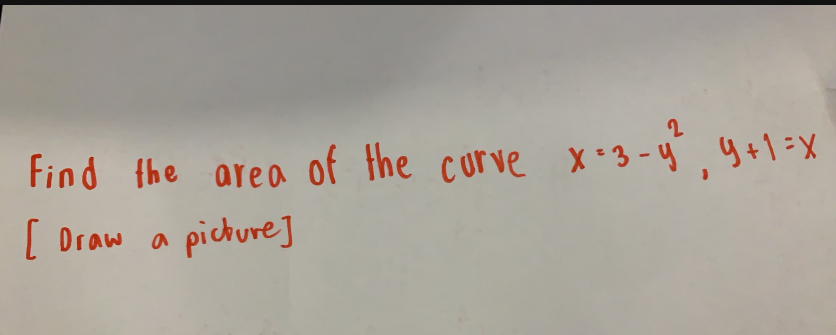 Find the area of the curve x = 3 - y², y + 1 = x
[ Draw a picture]